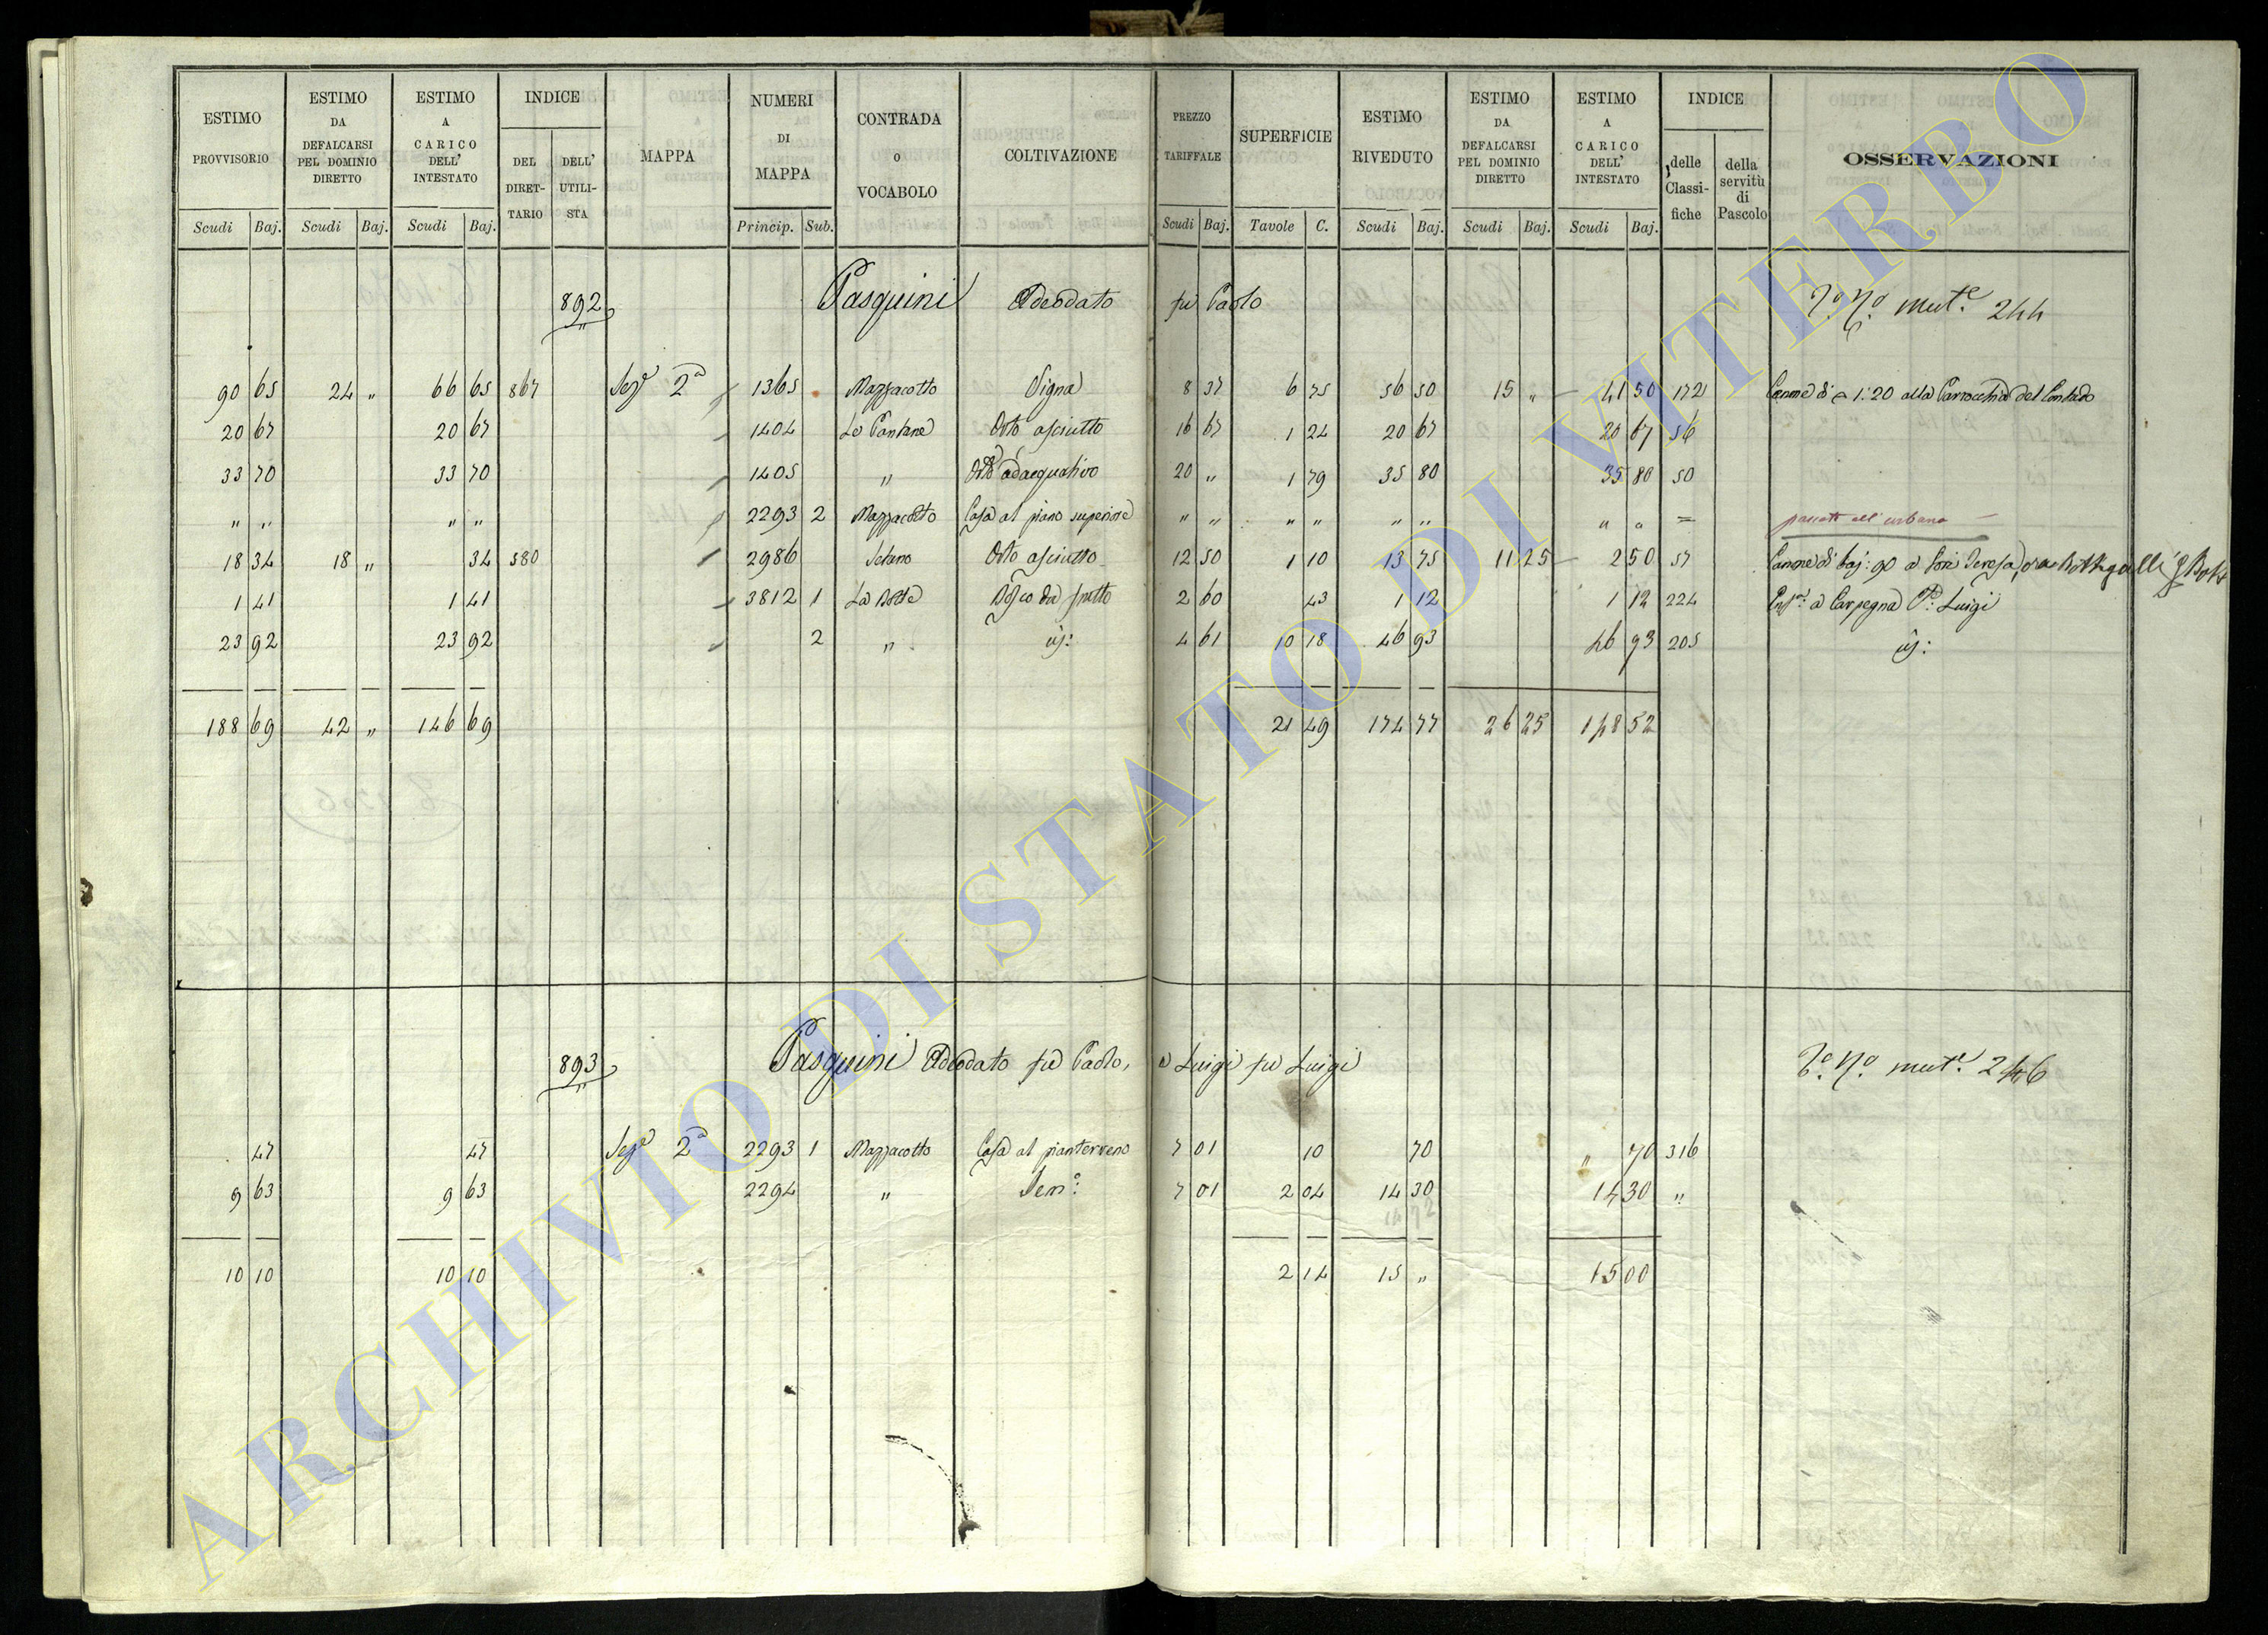 ESTIMO PROVVISORIO Scudi Baj.
ESTIMO DA DEFALCARSI PEL DOMINIO DIRETTO Scudi Baj.
ESTIMO A CARICO DELL' INTESTATO Scudi Baj.
INDICE DEL DIRETTARIO DELL' UTILISTA
MAPPA
NUMERI DI MAPPA Princip. Sub.
CONTRADA O VOCABOLO
COLTIVAZIONE
PREZZO TARIFFALE Scudi Baj.
SUPERFICIE Tavole C.
ESTIMO RIVEDUTO Scudi Baj.
ESTIMO DA DEFALCARSI PEL DOMINIO DIRETTO Scudi Baj.
ESTIMO A CARICO DELL' INTESTATO Scudi Baj.
INDICE delle Classifiche della servitù di Pascolo
OSSERVAZIONI
892 Pasquini Adeodato fu Paolo mut.e 244
90 65 24 " 66 65 867 Sez.e 2a 1365 Mazzacotto Vigna 8 37 6 75 56 50 15 " 41 50 172 Canone di 1:20 alla Parrocchia del Contado
20 67 20 67 1404 Le Pantane Orto asciutto 16 67 1 24 20 67 20 67 56
33 70 33 70 1405 " Orto adacquativo 20 " 1 79 35 80 35 80 50
" " " " 2293 2 Mazzacotto Casa al piano superiore " " " " " " " " = passato all'urbano
18 34 18 " 34 580 2986 Orto asciutto 12 50 1 10 13 75 11 25 2 50 57 Canone di baj: 90 a Teresa
1 41 1 41 3812 1 La Bosco da frutto 2 60 43 1 12 1 12 224 a Carpegna Luigi
23 92 23 92 2 " 4 61 10 18 46 93 46 93 205
188 69 42 " 146 69 21 49 174 77 26 25 148 52
893 Pasquini Adeodato fu Paolo, e Luigi fu Luigi mut.e 246
47 47 Sez.e 2a 2293 1 Mazzacotto Casa al pianterreno 7 01 10 70 " 70 316
9 63 9 63 2294 " Sem.o 7 01 2 04 14 30 14 30 "
10 10 10 10 2 14 15 " 15 00
ARCHIVIO DI STATO DI VITERBO